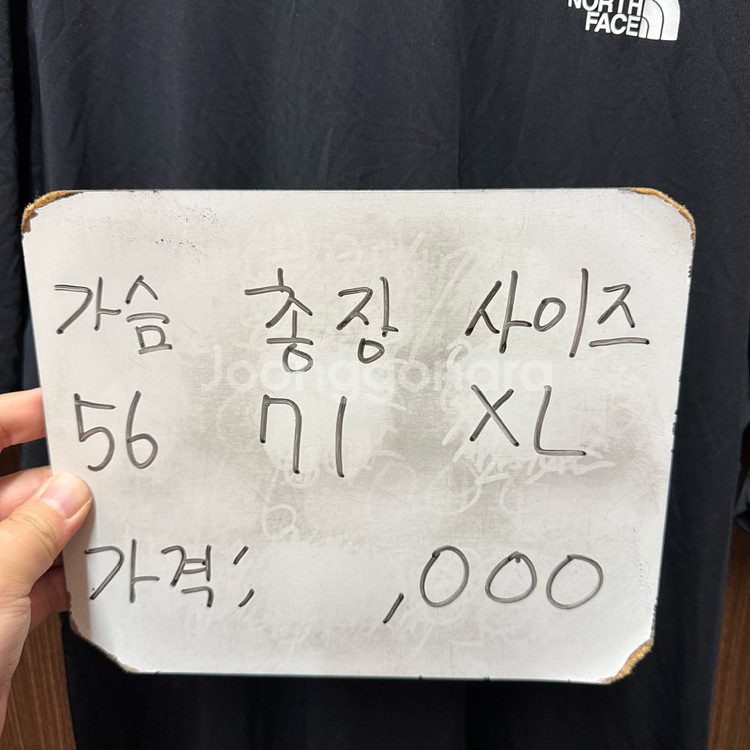 NORTH
FACE
가슴 총장 사이즈
Joonggonara
56 71 XL
가격; ,000